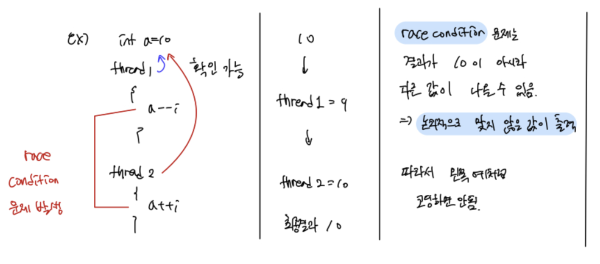 ex) int a=10
thread1 확인 가능
{
a--;
}
thread 2
{
a++;
}
race
condition
문제 발생
10
↓
thread1 = 9
↓
thread2=10
최종결과 10
race condition 문제는
결과가 10이 아니라
다른 값이 나올 수 있음.
=> 논리적으로 맞지 않은 값이 출력
따라서 왼쪽 예처럼
코딩하면 안됨.